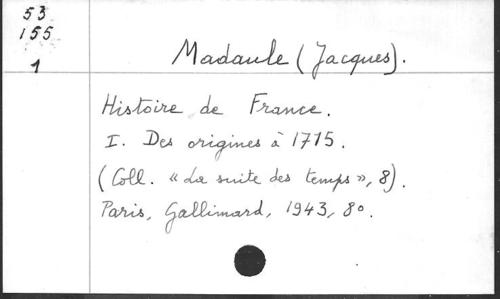 53
155
1
Madaule (Jacques).
Histoire de France.
I. Des origines à 1715.
(Coll. « La suite des temps », 8).
Paris, Gallimard, 1943, 8o.